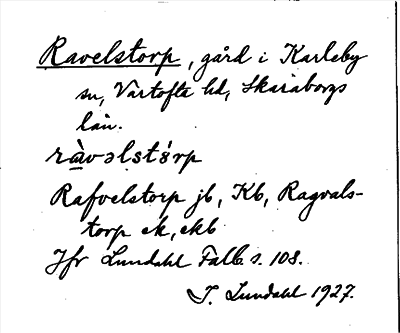 Ravelstorp, gård i Karleby
sn, Vartofta hd, Skaraborgs
län.
ràvəlstɵ́rp
Rafvelstorp jb, Kb, Ragvals-
torp ek, ekb
Jfr Lundahl Falb s. 108.
I. Lundahl 1927.